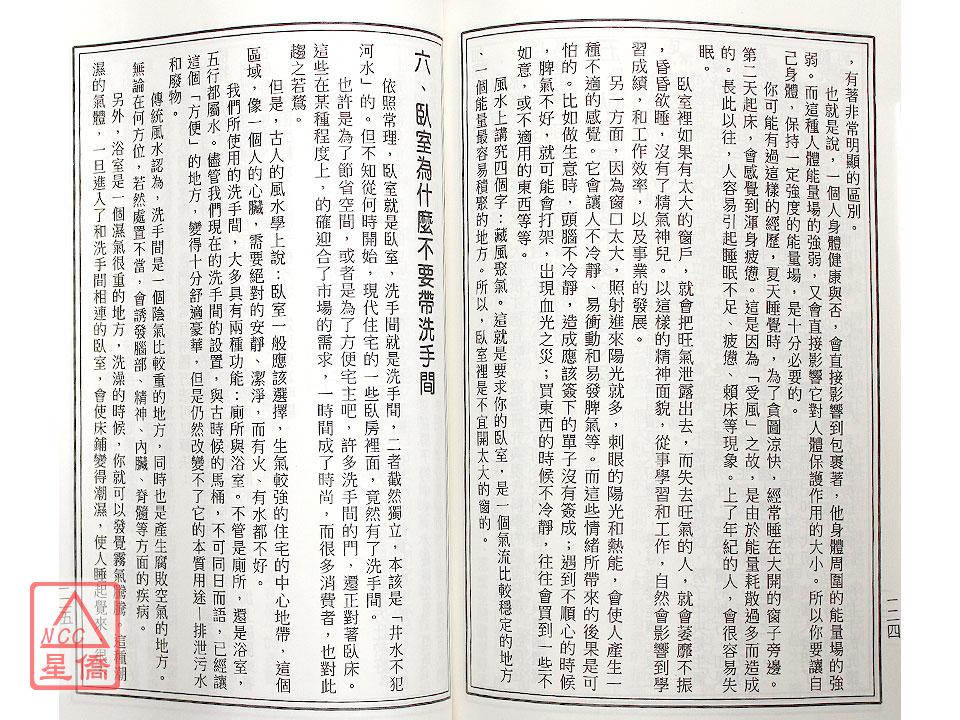 ，有著非常明顯的區別。
也就是說，一個人身體健康與否，會直接影響到包裹著，他身體周圍的能量場的強
弱。而這種人體能量場的強弱，又會直接影響它對人體保護作用的大小。所以你要讓自
己身體，保持一定強度的能量場，是十分必要的。
你可能有過這樣的經歷，夏天睡覺時，為了貪圖涼快，經常睡在大開的窗子旁邊。
第二天起床，會感覺到渾身疲憊。這是因為「受風」之故，是由於能量耗散過多而造成
的。長此以往，人容易引起睡眠不足、疲憊、賴床等現象。上了年紀的人，會很容易失
眠。
臥室裡如果有太大的窗戶，就會把旺氣泄露出去，而失去旺氣的人，就會萎靡不振
，昏昏欲睡，沒有了精氣神兒。以這樣的精神面貌，從事學習和工作，自然會影響到學
習成績，和工作效率，以及事業的發展。
另一方面，因為窗口太大，照射進來陽光就多，刺眼的陽光和熱能，會使人產生一
種不適的感覺。它會讓人不冷靜、易衝動和易發脾氣等。而這些情緒所帶來的後果是可
怕的。比如做生意時，頭腦不冷靜，造成應該簽下的單子沒有簽成；遇到不順心的時候
，脾氣不好，就可能會打架，出現血光之災；買東西的時候不冷靜，往往會買到一些不
如意，或不適用的東西等等。
風水上講究四個字：藏風聚氣。這就是要求你的臥室，是一個氣流比較穩定的地方
、一個能量最容易積聚的地方。所以，臥室裡是不宜開太大的窗的。
一二四
六、臥室為什麼不要帶洗手間
依照常理，臥室就是臥室，洗手間就是洗手間，二者截然獨立，本該是「井水不犯
河水」的。但不知從何時開始，現代住宅的一些臥房裡面，竟然有了洗手間。
也許是為了節省空間，或者是為了方便宅主吧，許多洗手間的門，還正對著臥床。
這些在某種程度上，的確迎合了市場的需求，一時間成了時尚，而很多消費者，也對此
趨之若鶩。
但是，古人的風水學上說：臥室一般應該選擇，生氣較強的住宅的中心地帶，這個
區域，像一個人的心臟，需要絕對的安靜、潔淨，而有火、有水都不好。
我們所使用的洗手間，大多具有兩種功能：廁所與浴室。不管是廁所，還是浴室，
五行都屬水。儘管我們現在的洗手間的設置，與古時候的馬桶，不可同日而語，已經讓
這個「方便」的地方，變得十分舒適豪華，但是仍然改變不了它的本質用途—排泄污水
和廢物。
傳統風水認為，洗手間是一個陰氣比較重的地方，同時也是產生腐敗空氣的地方。
無論在何方位，若然處置不當，會誘發腦部、精神、內臟、脊髓等方面的疾病。
另外，浴室是一個濕氣很重的地方，洗澡的時候，你就可以發覺霧氣騰騰，這種潮
濕的氣體，一旦進入了和洗手間相連的臥室，會使床鋪變得潮濕，使人睡起覺來，很
一二五
NCC
星僑